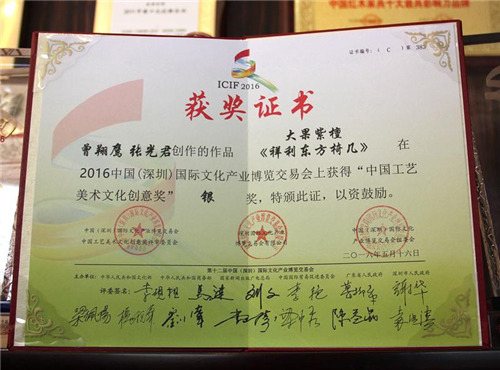 ICIF 2016
证书编号：( C ) 第 383
获奖证书
大果紫檀
曾翔鹰 张光君创作的作品 《祥利东方椅几》 在
2016中国(深圳)国际文化产业博览交易会上获得“中国工艺
美术文化创意奖” 银 奖，特颁此证，以资鼓励。
中国（深圳）国际文化产业博览交易会
中国工艺美术文化创意奖评审委员会
博览交易会有限公司
中国（深圳）国际文化
产业博览交易会组委会
二〇一六年五月十六日
第十二届中国（深圳）国际文化产业博览交易会
主办单位：中华人民共和国文化部 中华人民共和国商务部 国家新闻出版广电总局 中国国际贸易促进委员会 广东省人民政府 深圳市人民政府
评委签名：